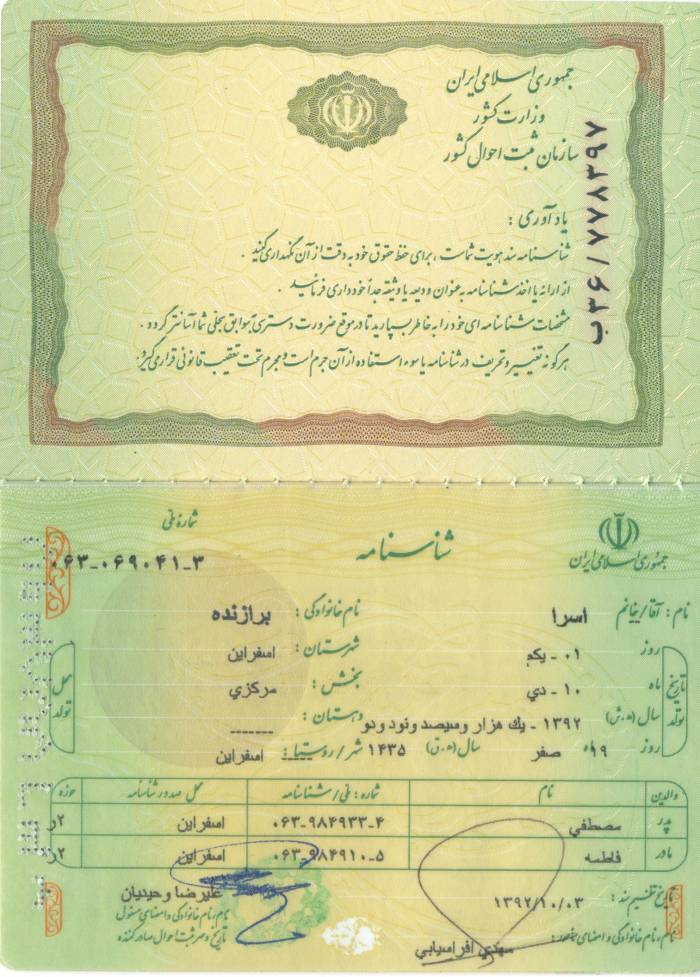 جمهوری اسلامی ایران
وزارت کشور
سازمان ثبت احوال کشور
ب۳۶/۷۷۸۳۹۷
یادآوری :
شناسنامه سند هویت شماست ، برای حفظ حقوق خود به دقت از آن نگهداری کنید .
از ارائه یا اخذ شناسنامه به عنوان ودیعه یا وثیقه جداً خودداری فرمائید .
مشخصات شناسنامه ای خود را به خاطر بسپارید تا در موقع ضرورت دسترسی به سوابق سجلی شما آسانتر گردد .
هرگونه تغییر و تحریف در شناسنامه یا سوء استفاده از آن جرم است و مجرم تحت تعقیب قانونی قرار می‌گیرد .
جمهوری اسلامی ایران
شناسنامه
شمارهٔ ملی
۰۶۳-۰۶۹۰۴۱-۳
نام : آقا/خانم اسرا نام خانوادگی : برازنده
تاریخ تولد
روز ۰۱ - یکم شهرستان : اسفراین
ماه ۱۰ - دي بخش : مرکزي
سال (ه.ش) ۱۳۹۲ - یك هزار وسیصد ونود ودو دهستان : -------
روز ۱۹ ماه صفر سال (ه.ق) ۱۴۳۵ شهر/روستا : ----- اسفراین
محل تولد
والدین نام شماره : ملی/شناسنامه محل صدور شناسنامه حوزه
پدر مصطفي ۰۶۳-۹۸۴۹۳۳-۴ اسفراین ۲ر
مادر فاطمه ۰۶۳-۹۸۴۹۱۰-۵ اسفراین ۲ر
تاریخ تنظیم سند : ۱۳۹۲/۱۰/۰۳
علیرضا وحیدیان
نام، نام خانوادگی و امضای مسئول
تاریخ و مهر ثبت احوال صادر کننده
نام، نام خانوادگی و امضای : مهدي افراسیابي